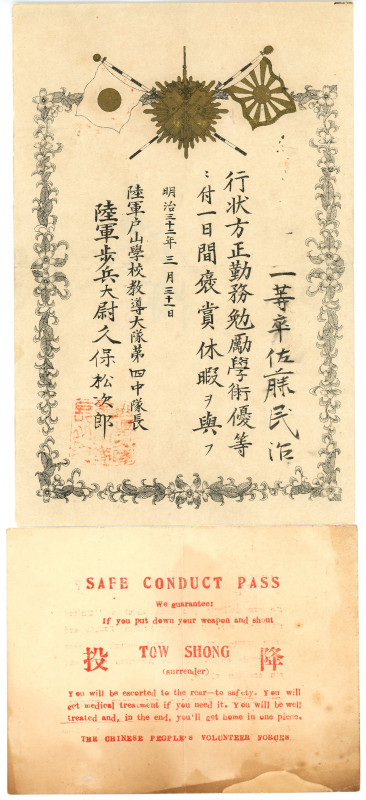 一等卒佐藤民治
行状方正勤務勉勵學術優等
ニ付一日間褒賞休暇ヲ與フ
明治三十二年三月三十一日
陸軍戸山學校教導大隊第四中隊長
陸軍歩兵大尉久保松次郎
SAFE CONDUCT PASS
We guarantee:
If you put down your weapon and shout
投 TOW SHONG 降
(surrender)
You will be escorted to the rear—to safety. You will
get medical treatment if you need it. You will be well
treated and, in the end, you'll get home in one piece.
THE CHINESE PEOPLE'S VOLUNTEER FORCES